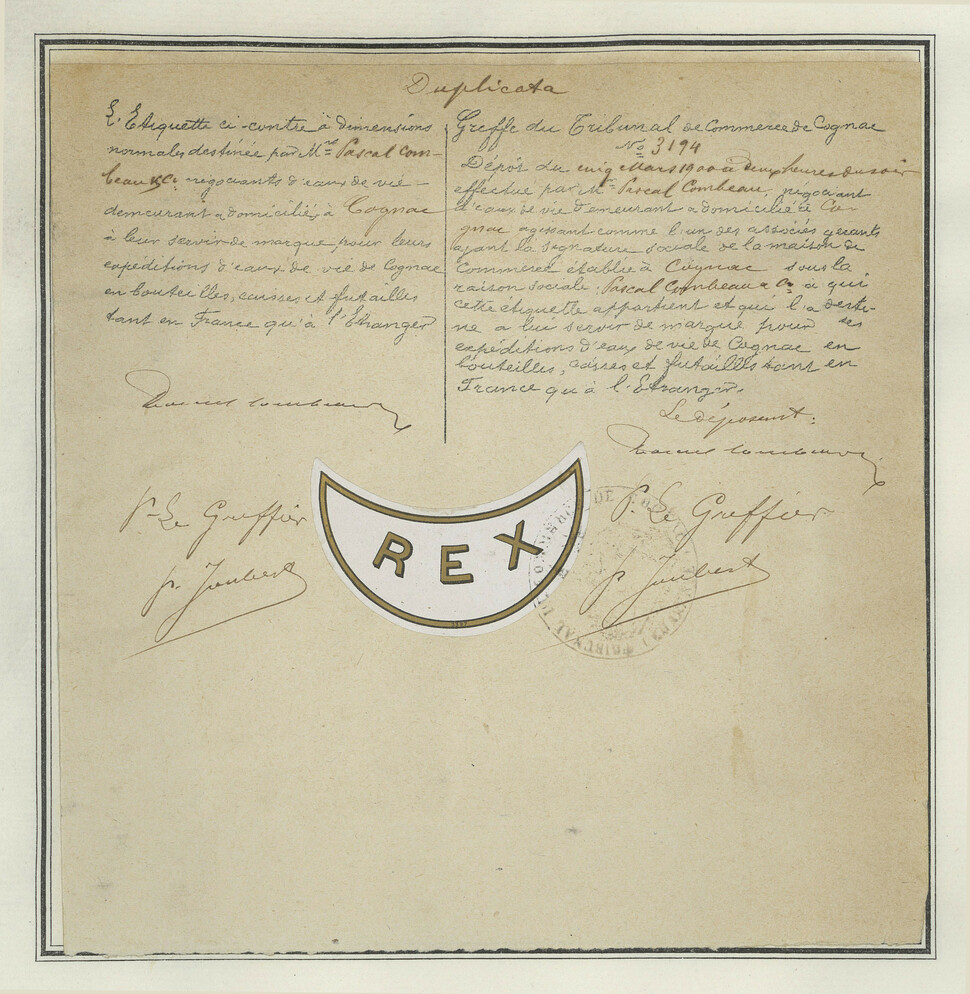 Duplicata
L'Etiquette ci-contre à dimensions
normales destinée par Mrs Pascal Com-
beau & Co négociants d'eaux de vie -
demeurant & domiciliés à Cognac
à leur servir de marque pour leurs
expéditions d'eaux de vie de Cognac
en bouteilles, caisses et futailles
tant en France qu'à l'Etranger
Pascal Combeau
P. Le Greffier
p. Joubert
Greffe du Tribunal de Commerce de Cognac
No 3194
Dépôt du cinq Mars 1900 à deux heures du soir
effectué par Mr Pascal Combeau, négociant
d'eaux de vie demeurant & domicilié à Co-
gnac agissant comme l'un des associés gérants
ayant la signature sociale de la maison de
Commerce établie à Cognac sous la
raison sociale: Pascal Combeau & Co à qui
cette étiquette appartient et qui l'a desti-
né a lui servir de marque pour ses
expéditions d'eaux de vie de Cognac en
bouteilles, caisses et futailles tant en
France qu'à l'Etranger.
Le déposant:
Pascal Combeau
P. Le Greffier
p. Joubert
REX
TRIBUNAL DE COMMERCE DE COGNAC